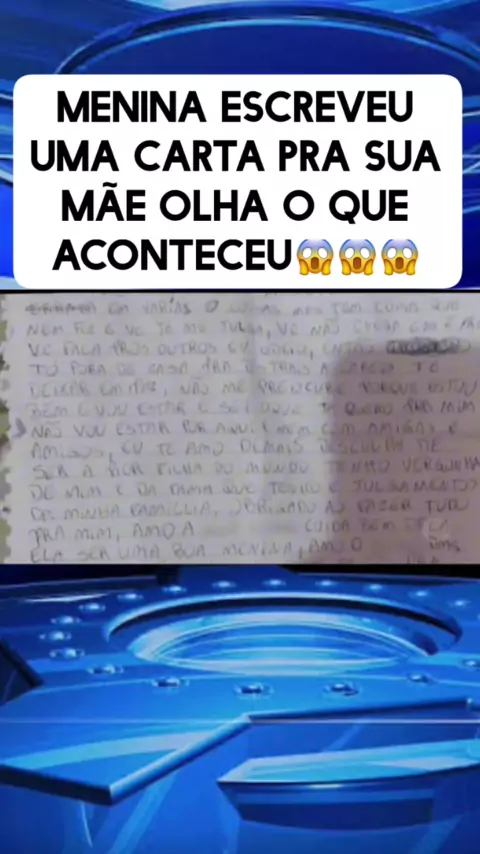 MENINA ESCREVEU
UMA CARTA PRA SUA
MÃE OLHA O QUE
ACONTECEU😱😱😱
EM VARIAS
NEM FIZ E VC JA ME JULGA, VC NÃO
VC FALA PROS OUTROS EU ODEIO, ENTÃO
TO FORA DE CASA PRA
DEIXAR EM PAZ, NÃO ME PROCURE PORQUE ESTOU
BEM E VOU ESTAR E SEI QUE
NÃO VOU ESTAR POR AQUI E NEM COM AMIGAS E
AMIGOS, EU TE AMO DEMAIS DESCULPA DE
SER A PIOR FILHA DO MUNDO TENHO VERGONHA
DE MIM E DA FAMA QUE TENHO E JULGAMENTO
DE MINHA FAMILLIA, OBRIGADO AO FAZER TUDO
PRA MIM, AMO A CUIDA BEM DELA
ELA SER UMA BOA MENINA, AMO O